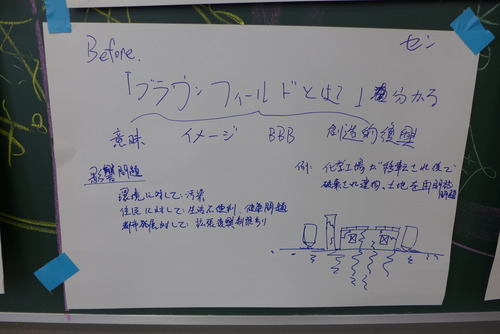 Before.
セン
「ブラウンフィールドとは?」 分かる
意味 イメージ BBB 創造的復興
影響問題
環境に対して:汚染
住民に対して:生活不便利、健康問題
都市発展に対して:拡張後 制限あり
例: 化学工場が移転され後で
破棄され建物、土地を再開発
問題